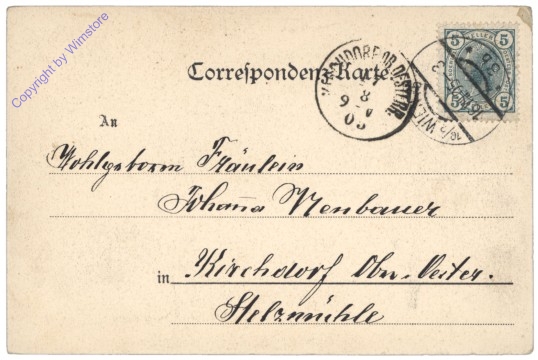 Copyright by Wimstore
Correspondenz-Karte
KIRCHDORF OB. OESTERR.
5 5
5 5
16/1 WIEN
An
Wohlgeborm Fräulein
Johanna Neubauer
in Kirchdorf Ober-Oester.
Stelzmühle